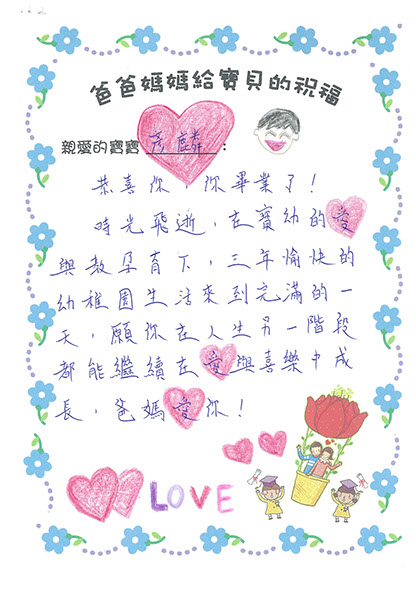 爸爸媽媽給寶貝的祝福
親愛的寶寶 彥麟 :
恭喜你，你畢業了！
時光飛逝，在寶幼的愛
與教孕育下，三年愉快的
幼稚園生活來到充滿的一
天，願你在人生另一階段
都能繼續在愛與喜樂中成
長，爸媽愛你！
LOVE